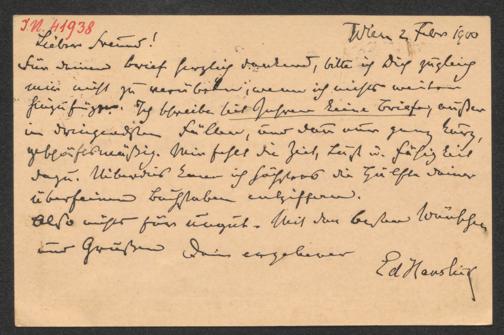 I.N. 41938
Wien 2 Febr 1900
Lieber Freund!
Für deinen Brief herzlich dankend, bitte ich Dich zugleich
mir nicht zu verübeln, wenn ich nichts weiter
hinzufüge. Ich schreibe seit Jahren keine Briefe, außer
in dringendsten Fällen, und dann nur ganz kurz,
geschäftsmäßig. Mir fehlt die Zeit, Lust u. Fähigkeit
dazu. Überdies kann ich höchstens die Hälfte deiner
überfeinen Buchstaben entziffern.
Also nichts für ungut. Mit den besten Wünschen
und Grüßen Dein ergebener
Ed Hanslick